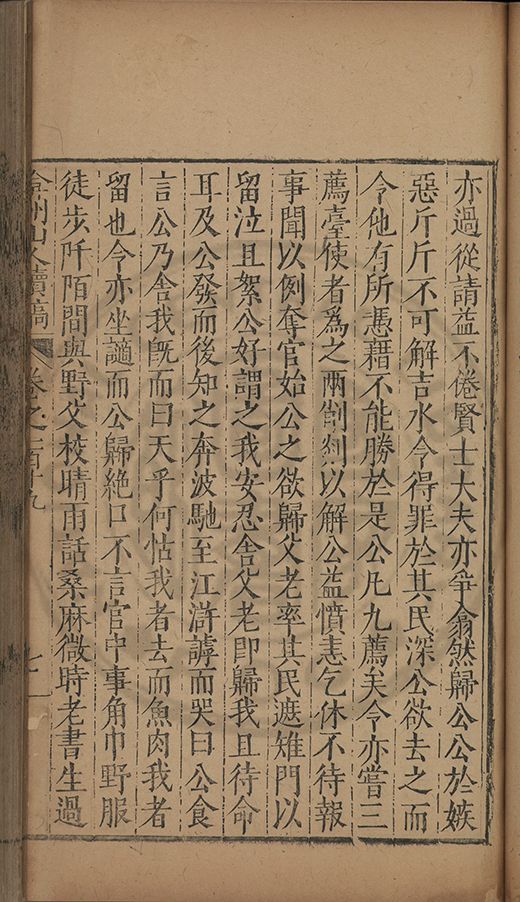 亦過從請益不倦賢士大夫亦爭翕然歸公公於嫉
惡斤斤不可解吉水令得罪於其民深公欲去之而
令他有所憑藉不能勝於是公凡九薦矣令亦嘗三
薦臺使者為之兩劊劂以解公益憤恚乞休不待報
事聞以例奪官始公之欲歸父老率其民遮雉門以
留泣且絮公好謂之我安忍舍父老即歸我且待命
耳及公發而後知之奔波馳至江滸謼而哭曰公食
言公乃舍我旣而曰天乎何怙我者去而魚肉我者
留也今亦坐讁而公歸絶口不言官中事角巾野服
徒步阡陌間與野父校晴雨話桑麻微時老書生過
弇州山人續稿 卷之一百十九 七